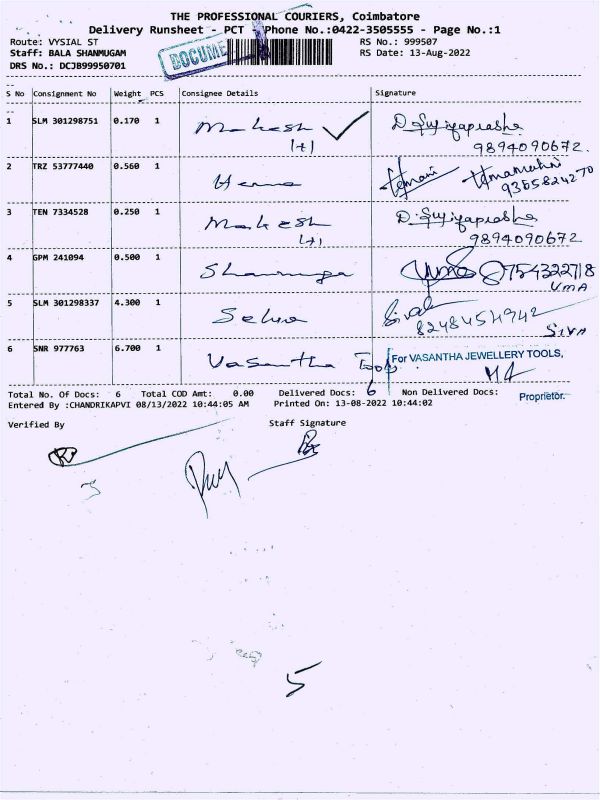 THE PROFESSIONAL COURIERS, Coimbatore
Delivery Runsheet - PCT - Phone No.:0422-3505555 - Page No.:1
Route: VYSIAL ST RS No.: 999507
Staff: BALA SHANMUGAM DOCUME RS Date: 13-Aug-2022
DRS No.: DCJB99950701
S No Consignment No Weight PCS Consignee Details Signature
1 SLM 301298751 0.170 1 Mahesh
1+1 9894090672.
2 TRZ 53777440 0.560 1 Hema Hemani Umamahi
9365824270
3 TEN 7334528 0.250 1 Mahesh
1+1 9894090672
4 GPM 241094 0.500 1 Shanmuga Uma 8754322718
UMA
5 SLM 301298337 4.300 1 Selva Siva
8248454942
SIVA
6 SNR 977763 6.700 1 Vasantha Tools For VASANTHA JEWELLERY TOOLS,
Proprietor.
Total No. Of Docs: 6 Total COD Amt: 0.00 Delivered Docs: 6 Non Delivered Docs:
Entered By :CHANDRIKAPVI 08/13/2022 10:44:05 AM Printed On: 13-08-2022 10:44:02
Verified By Staff Signature
5